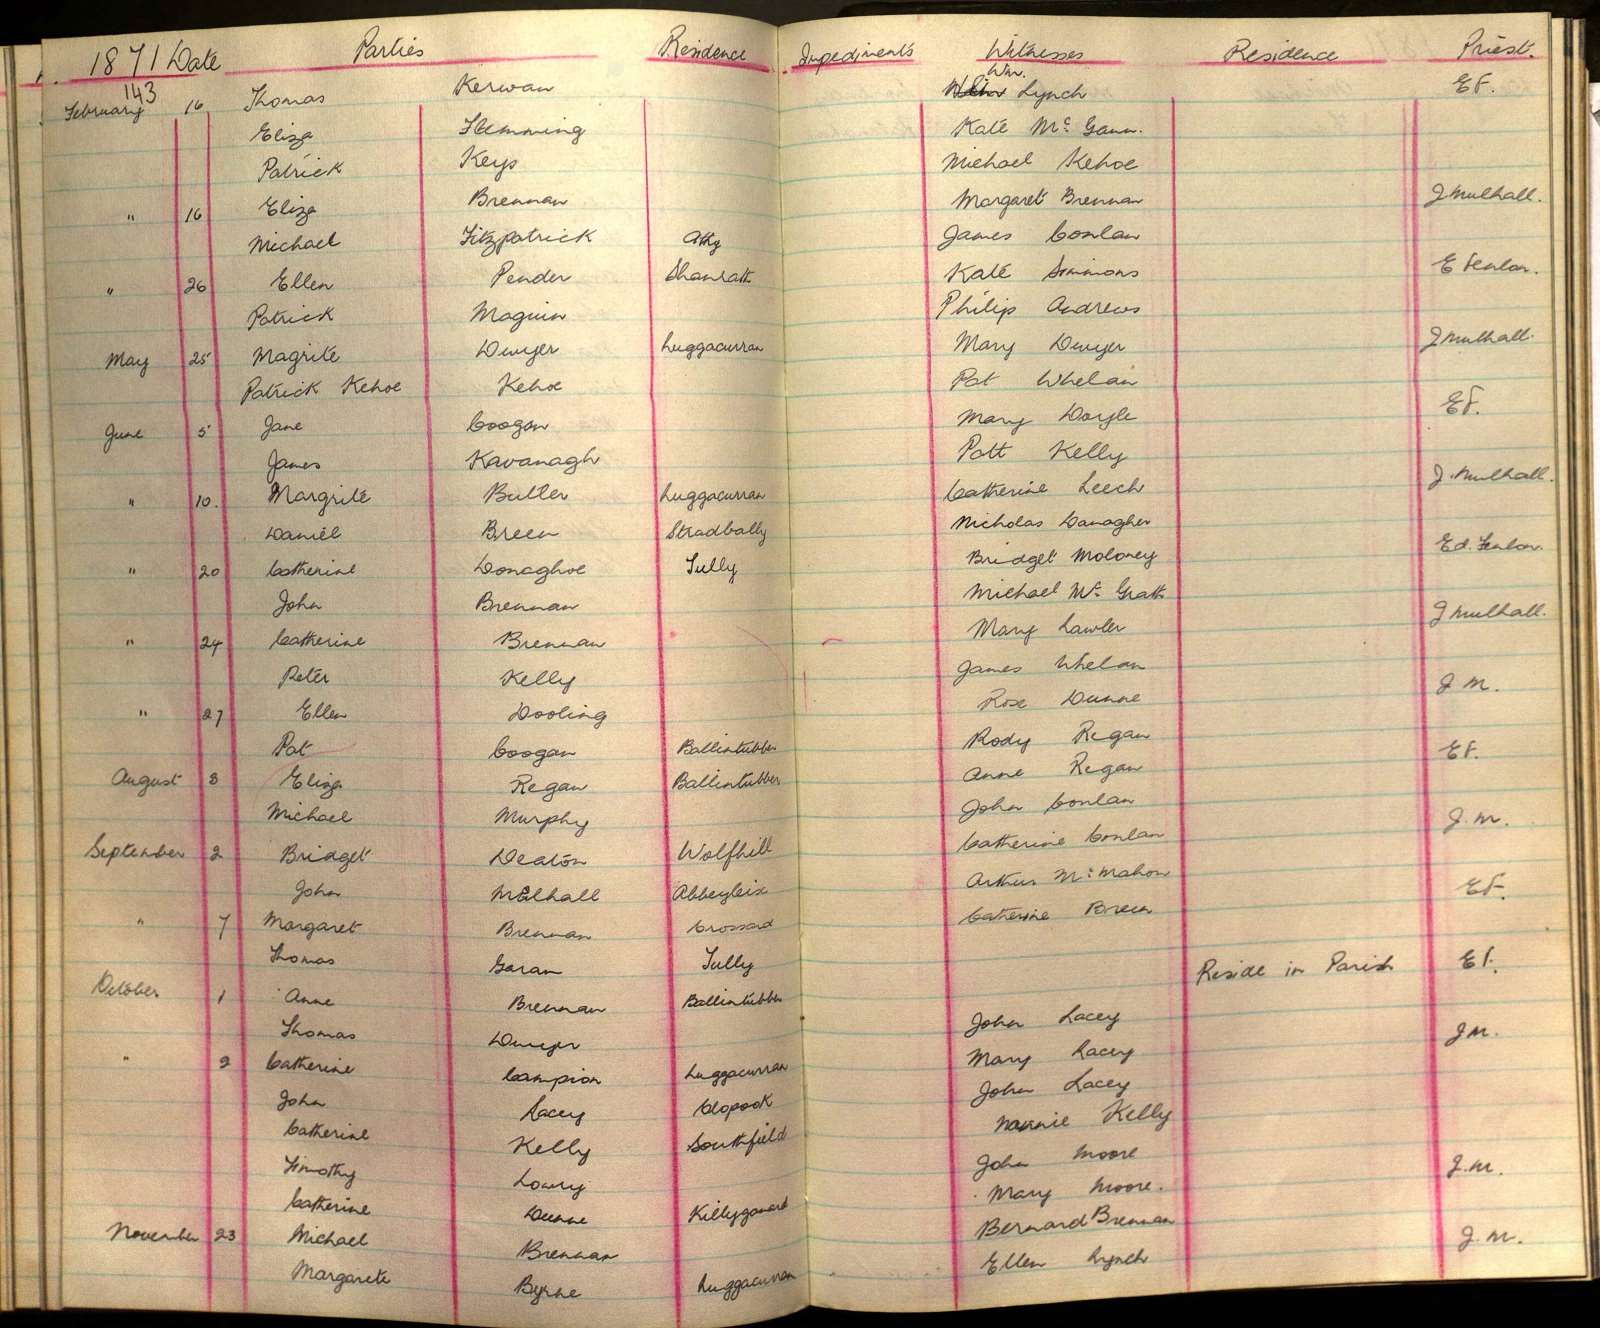 1871 Date Parties Residence Impediments Witnesses Residence Priest.
143
February 16 Thomas Kerwan Wm. Lynch EF.
Eliza Flemming Kate Mc Gann.
Patrick Keys Michael Kehoe
" 16 Eliza Brennan Margaret Brennan J Mulhall.
Michael Fitzpatrick Athy James Conlan
" 26 Ellen Pender Shanrath Kate Simmons E Fenlon.
Patrick Maguin Philip Andrews
May 25 Magrite Dwyer Luggacurran Mary Dwyer J Mulhall.
Patrick Kehoe Kehoe Pat Whelan
June 5 Jane Coogan Mary Doyle EF.
James Kavanagh Patt Kelly
" 10. Margrite Butler Luggacurran Catherine Leech J. Mulhall.
Daniel Breen Stradbally Nicholas Danagher
" 20 Catherine Donaghoe Tully Bridget Moloney Ed. Fenlon.
John Brennan Michael Mc Grath
" 24 Catherine Brennan Mary Lawler J Mulhall.
Peter Kelly James Whelan
" 27 Ellen Dooling Rose Dunne J M.
Pat Coogan Ballintubber Rody Regan
August 3 Eliza Regan Ballintubber Anne Regan EF.
Michael Murphy John Conlan
September 2 Bridget Deaton Wolfhill Catherine Conlan J. M.
John Mulhall Abbeyleix Arthur Mc Mahon
" 7 Margaret Brennan Crossard Catherine Breen EF.
Thomas Garan Tully
October 1 Anne Brennan Ballintubber Reside in Parish EF.
Thomas Dwyer John Lacey
" 2 Catherine Campion Luggacurran Mary Lacey J M.
John Lacey Clopook John Lacey
Catherine Kelly Southfield Nannie Kelly
Timothy Lowry John Moore
Catherine Dunne Mary Moore. J. M.
November 23 Michael Brennan Bernard Brennan
Margarete Byrne Luggacurran Ellen Lynch J. M.